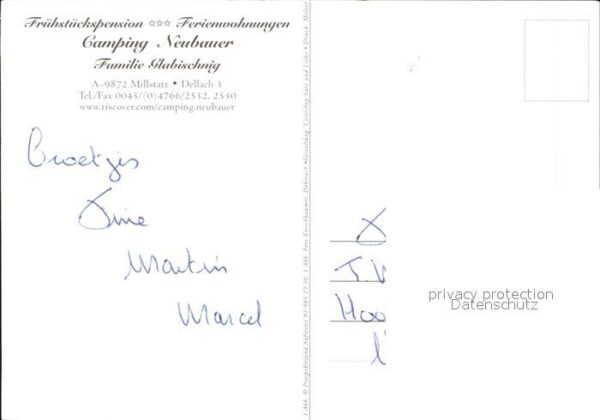 Frühstückspension ☆☆☆ Ferienwohnungen
Camping Neubauer
Familie Glabischnig
A-9872 Millstatt • Dellach 3
Tel./Fax 0043/(0)4766/2532, 2530
www.tiscover.com/camping.neubauer
Groetjes
Martin
Marcel
T.V
Hoo
privacy protection
Datenschutz